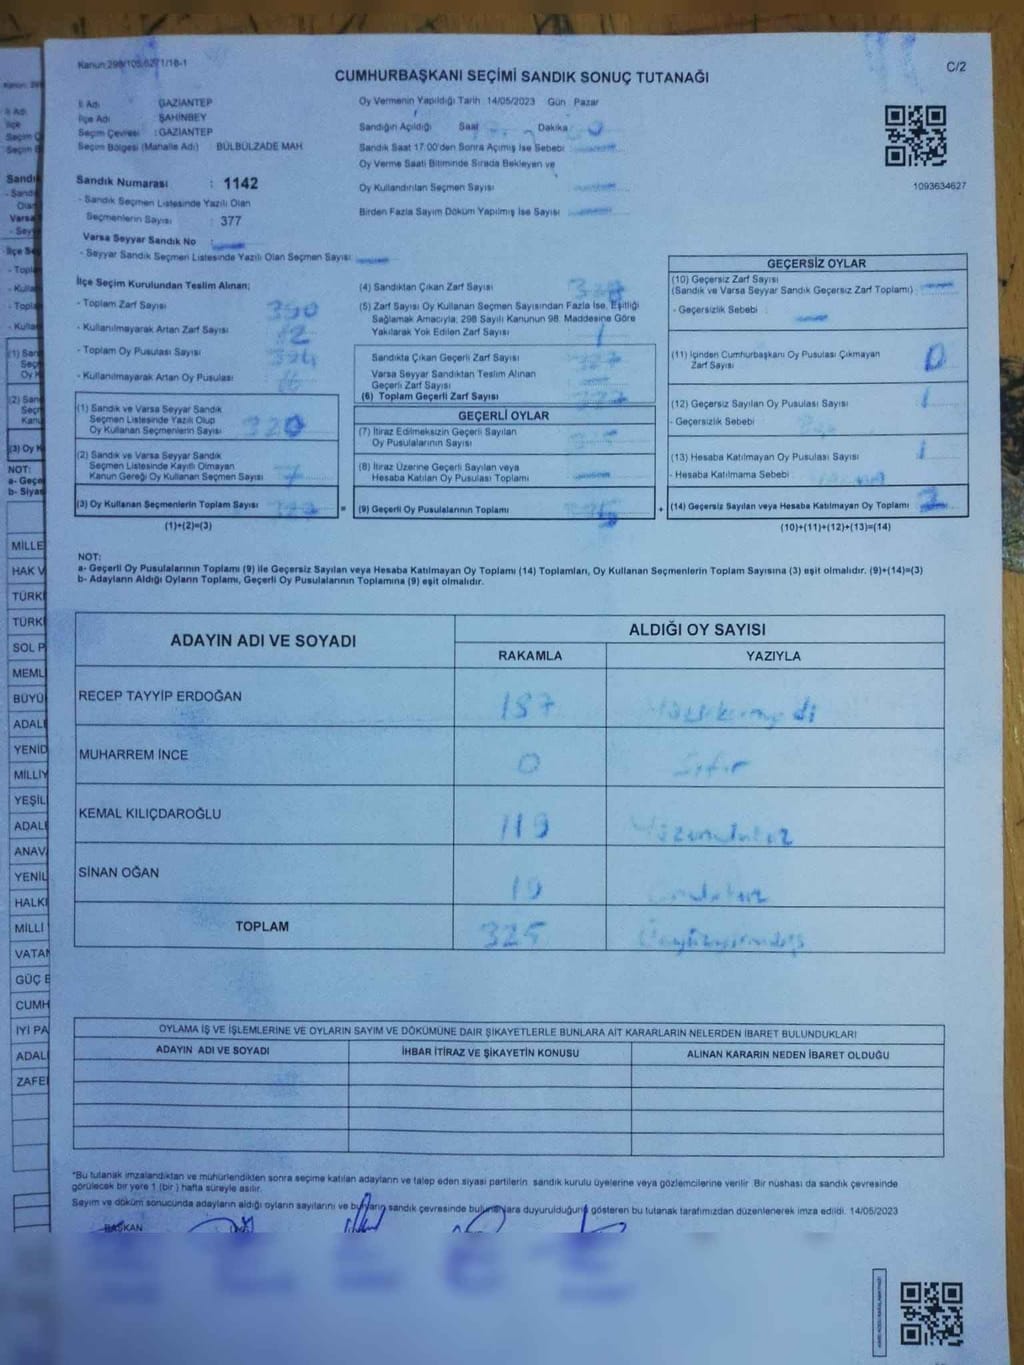 Kanun:298/105,6271/18-1
C/2
CUMHURBAŞKANI SEÇİMİ SANDIK SONUÇ TUTANAĞI
İl Adı : GAZİANTEP
İlçe Adı ŞAHİNBEY
Seçim Çevresi : GAZİANTEP
Seçim Bölgesi (Mahalle Adı) BÜLBÜLZADE MAH
Sandık Numarası : 1142
- Sandık Seçmen Listesinde Yazılı Olan
Seçmenlerin Sayısı : 377
Varsa Seyyar Sandık No :
- Seyyar Sandık Seçmen Listesinde Yazılı Olan Seçmen Sayısı
Oy Vermenin Yapıldığı Tarih 14/05/2023 Gün Pazar
Sandığın Açıldığı Saat Dakika
Sandık Saat 17.00'den Sonra Açılmış İse Sebebi
Oy Verme Saati Bitiminde Sırada Bekleyen ve
Oy Kullandırılan Seçmen Sayısı
Birden Fazla Sayım Döküm Yapılmış İse Sayısı
1093634627
İlçe Seçim Kurulundan Teslim Alınan;
- Toplam Zarf Sayısı 390
- Kullanılmayarak Artan Zarf Sayısı
- Toplam Oy Pusulası Sayısı
- Kullanılmayarak Artan Oy Pusulası
(1) Sandık ve Varsa Seyyar Sandık
Seçmen Listesinde Yazılı Olup
Oy Kullanan Seçmenlerin Sayısı 320
(2) Sandık ve Varsa Seyyar Sandık
Seçmen Listesinde Kayıtlı Olmayan
Kanun Gereği Oy Kullanan Seçmen Sayısı 7
(3) Oy Kullanan Seçmenlerin Toplam Sayısı
(1)+(2)=(3)
(4) Sandıktan Çıkan Zarf Sayısı 328
(5) Zarf Sayısı Oy Kullanan Seçmen Sayısından Fazla İse, Eşitliği
Sağlamak Amacıyla, 298 Sayılı Kanunun 98. Maddesine Göre
Yakılarak Yok Edilen Zarf Sayısı 1
Sandıkta Çıkan Geçerli Zarf Sayısı 327
Varsa Seyyar Sandıktan Teslim Alınan
Geçerli Zarf Sayısı
(6) Toplam Geçerli Zarf Sayısı 327
GEÇERLİ OYLAR
(7) İtiraz Edilmeksizin Geçerli Sayılan
Oy Pusulalarının Sayısı
(8) İtiraz Üzerine Geçerli Sayılan veya
Hesaba Katılan Oy Pusulası Toplamı
=
(9) Geçerli Oy Pusulalarının Toplamı
+
GEÇERSİZ OYLAR
(10) Geçersiz Zarf Sayısı
(Sandık ve Varsa Seyyar Sandık Geçersiz Zarf Toplamı)
- Geçersizlik Sebebi :
(11) İçinden Cumhurbaşkanı Oy Pusulası Çıkmayan
Zarf Sayısı 0
(12) Geçersiz Sayılan Oy Pusulası Sayısı 1
- Geçersizlik Sebebi
(13) Hesaba Katılmayan Oy Pusulası Sayısı 1
- Hesaba Katılmama Sebebi
(14) Geçersiz Sayılan veya Hesaba Katılmayan Oy Toplamı 2
(10)+(11)+(12)+(13)=(14)
NOT:
a- Geçerli Oy Pusulalarının Toplamı (9) ile Geçersiz Sayılan veya Hesaba Katılmayan Oy Toplamı (14) Toplamları, Oy Kullanan Seçmenlerin Toplam Sayısına (3) eşit olmalıdır. (9)+(14)=(3)
b- Adayların Aldığı Oyların Toplamı, Geçerli Oy Pusulalarının Toplamına (9) eşit olmalıdır.
ADAYIN ADI VE SOYADI
ALDIĞI OY SAYISI
RAKAMLA YAZIYLA
RECEP TAYYİP ERDOĞAN 187
MUHARREM İNCE 0 Sıfır
KEMAL KILIÇDAROĞLU 119 Yüzondokuz
SİNAN OĞAN 19 Ondokuz
TOPLAM 325 Üçyüzyirmibeş
OYLAMA İŞ VE İŞLEMLERİNE VE OYLARIN SAYIM VE DÖKÜMÜNE DAİR ŞİKAYETLERLE BUNLARA AİT KARARLARIN NELERDEN İBARET BULUNDUKLARI
ADAYIN ADI VE SOYADI İHBAR İTİRAZ VE ŞİKAYETİN KONUSU ALINAN KARARIN NEDEN İBARET OLDUĞU
*Bu tutanak imzalandıktan ve mühürlendikten sonra seçime katılan adayların ve talep eden siyasi partilerin sandık kurulu üyelerine veya gözlemcilerine verilir. Bir nüshası da sandık çevresinde
görülecek bir yere 1 (bir) hafta süreyle asılır.
Sayım ve döküm sonucunda adayların aldığı oyların sayılarını ve bunların sandık çevresinde bulunanlara duyurulduğunu gösteren bu tutanak tarafımızdan düzenlenerek imza edildi. 14/05/2023
BAŞKAN